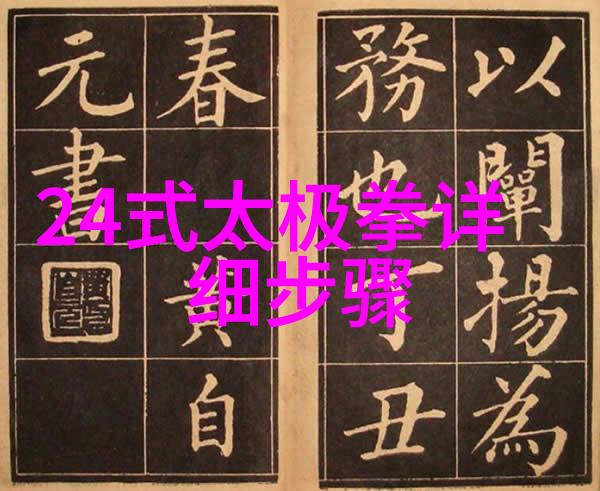 以闡揚為
務也丁丑
春黄自
元書
24式太极拳详
细步骤